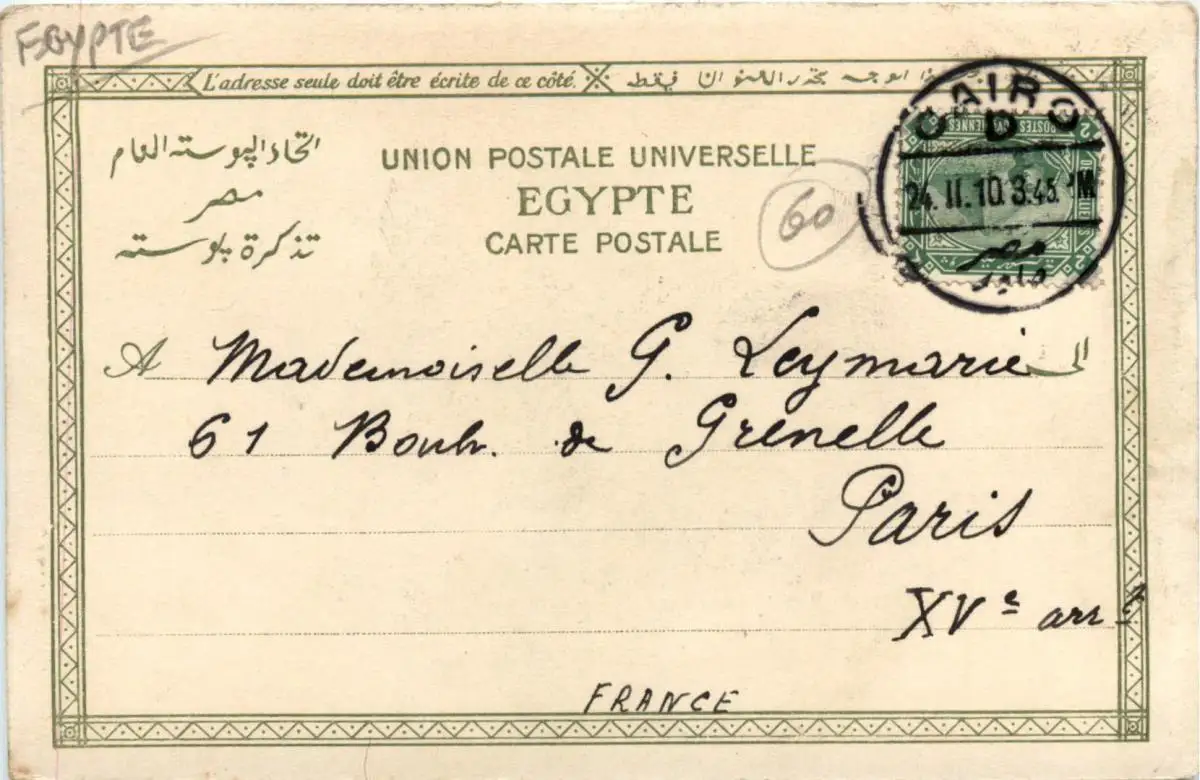 EGYPTE
L'adresse seule doit être écrite de ce côté.
فقط
اتحاد البوسته العام
مصر
تذكرة بوسته
UNION POSTALE UNIVERSELLE
EGYPTE
CARTE POSTALE
60
CAIRO
D
24.II.10 3.45 M
مصر
POSTES
2
A Mademoiselle G. Leymarie الى
61 Boulv. de Grenelle
Paris
XVe arrt
FRANCE